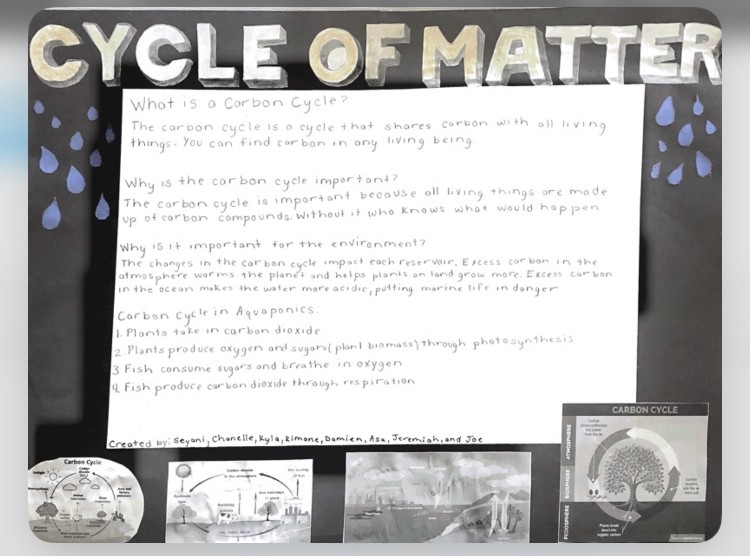 CYCLE OF MATTER
What is a Carbon Cycle?
The carbon cycle is a cycle that shares carbon with all living
things. You can find carbon in any living being.
Why is the carbon cycle important?
The carbon cycle is important because all living things are made
up of carbon compounds. Without it who knows what would happen
Why is it important for the environment?
The changes in the carbon cycle impact each reservoir. Excess carbon in the
atmosphere warms the planet and helps plants on land grow more. Excess carbon
in the ocean makes the water more acidic, putting marine life in danger
Carbon Cycle in Aquaponics:
1. Plants take in carbon dioxide
2. Plants produce oxygen and sugars (plant biomass) through photosynthesis
3 Fish consume sugars and breathe in oxygen
4. Fish produce carbon dioxide through respiration
Created by: Seyani, Chanelle, Kyla, Kimone, Damien, Asa, Jeremiah, and Joe
Carbon Cycle
Carbon dioxide
in the atmosphere
CARBON CYCLE
ATMOSPHERE
BIOSPHERE
PEDOSPHERE